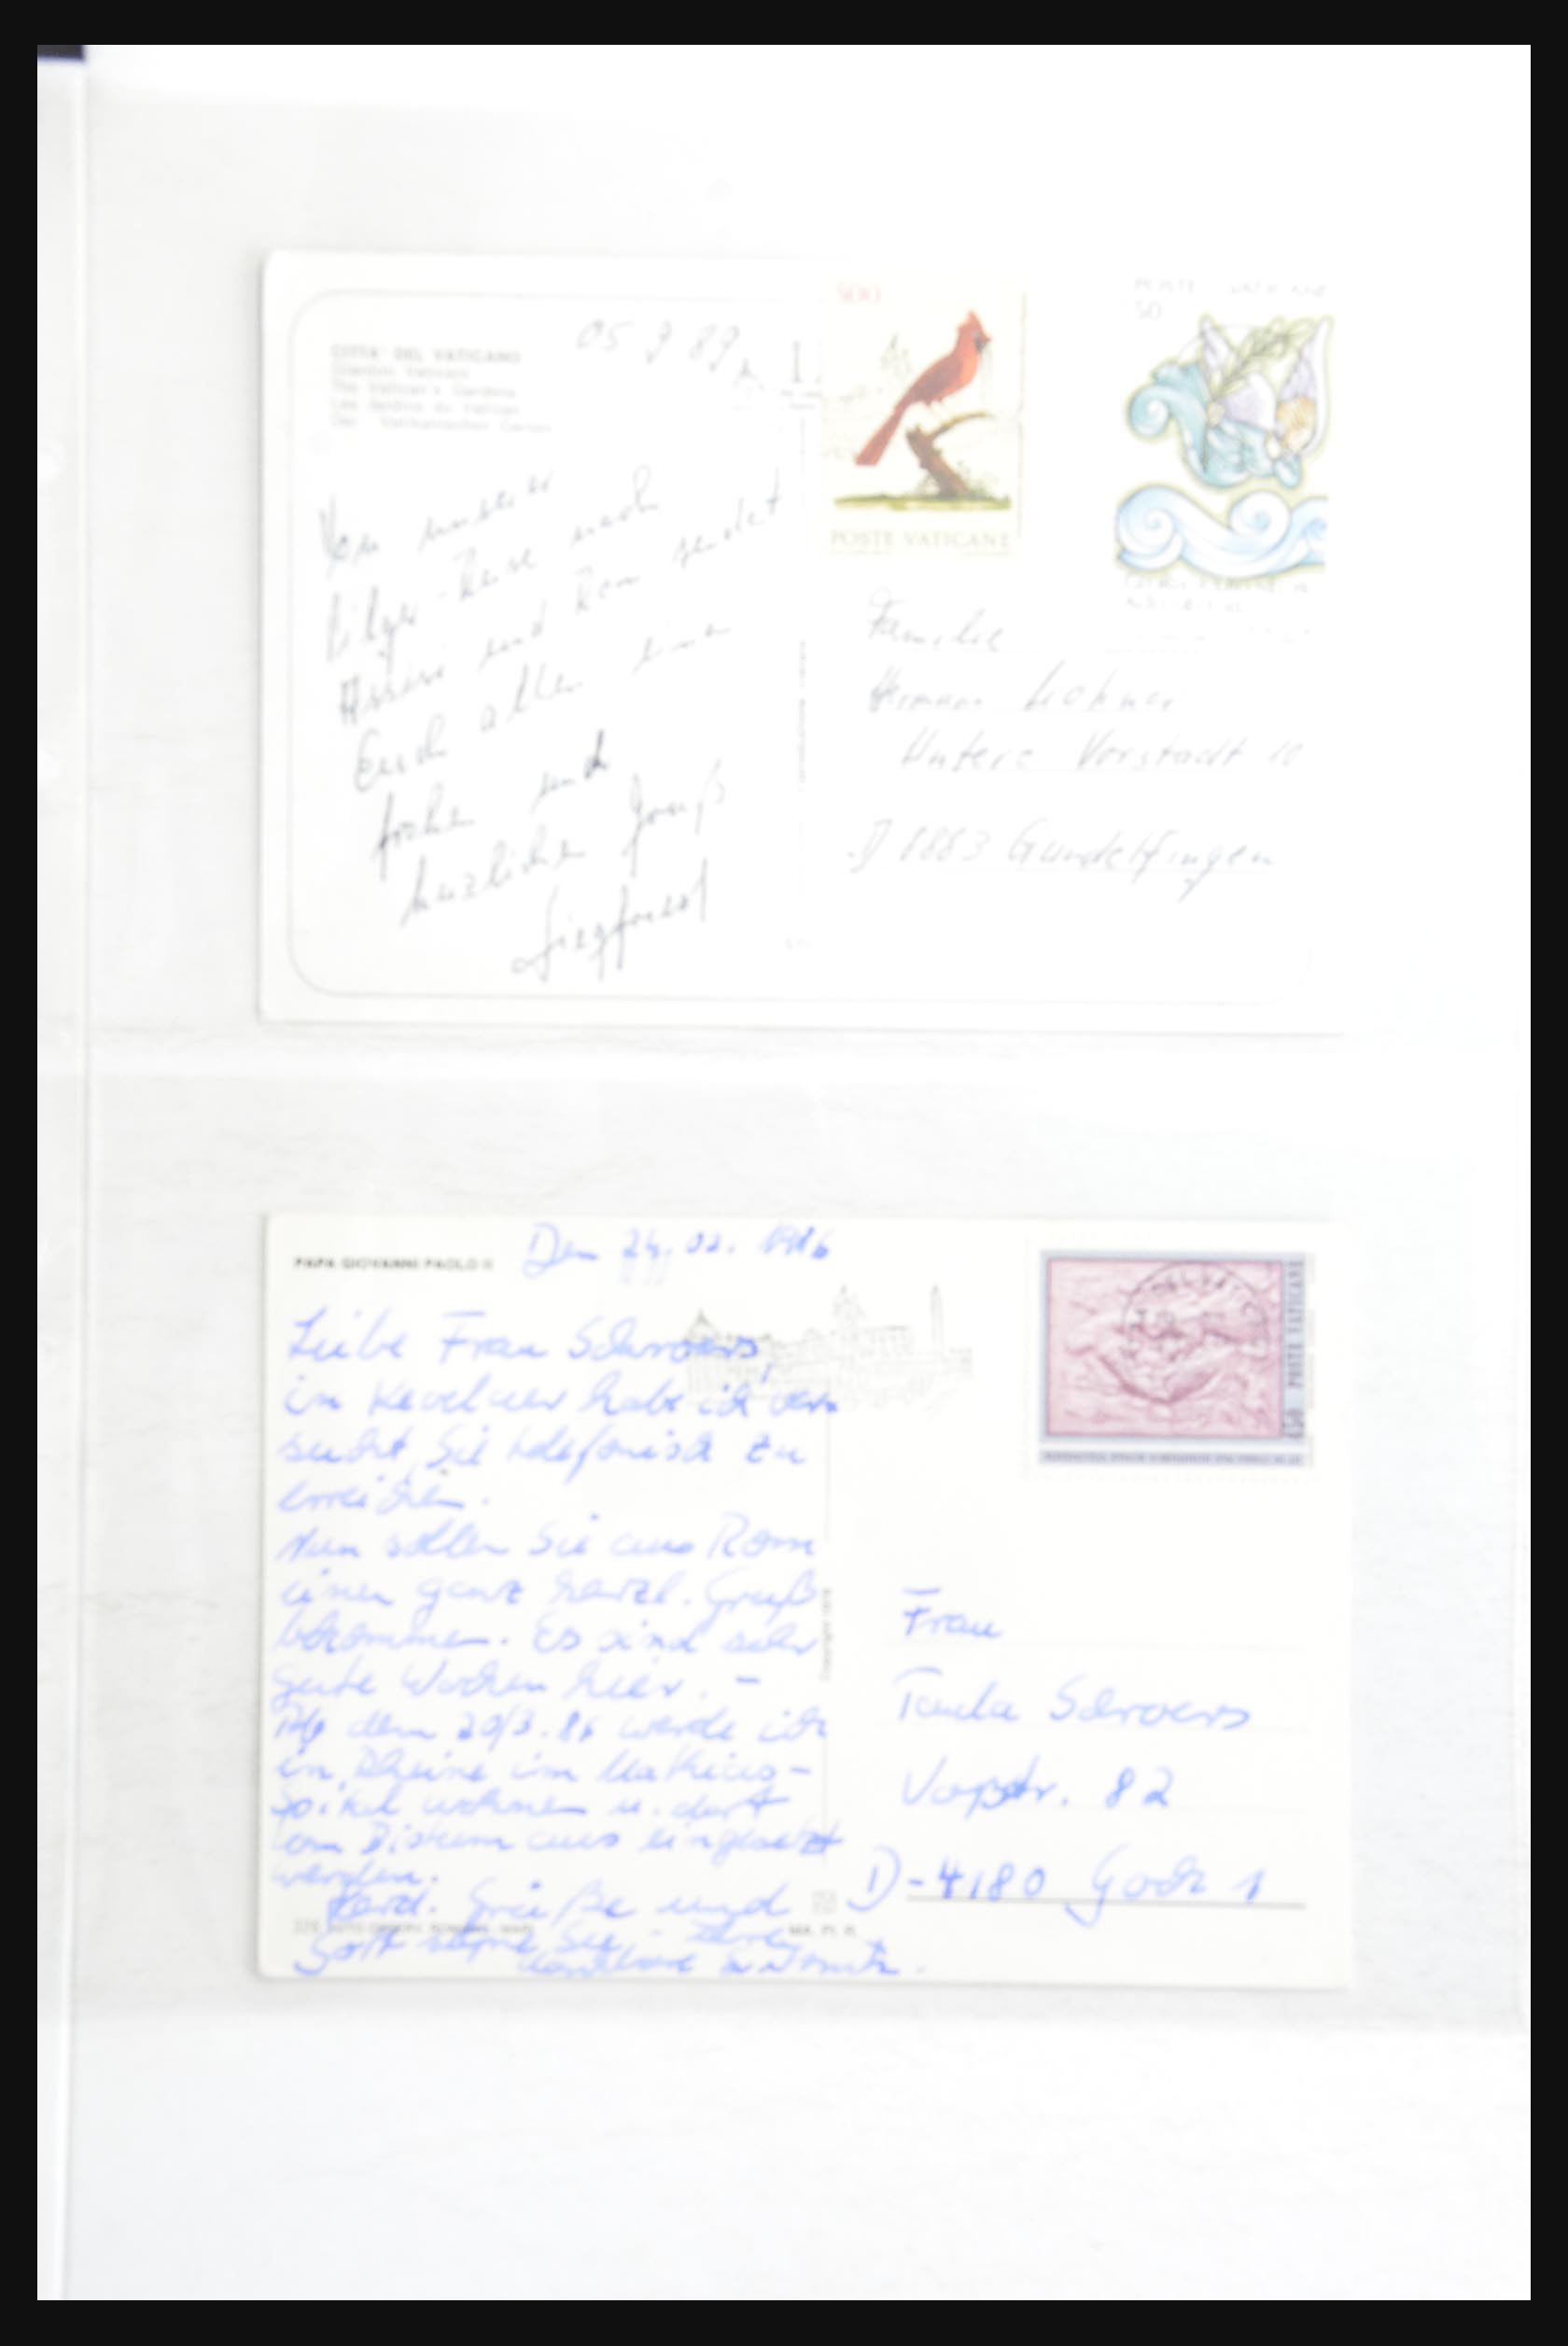 CITTA' DEL VATICANO
Giardini Vaticani
The Vatican's Gardens
Les Jardins du Vatican
05 9 89
500
POSTE VATICANE
POSTE VATICANE
50
Von unserer
Pilger-Reise nach
Assisi und Rom sendet
Euch allen eine
frohe und
herzliche Gruß
Siegfried
Familie
Herman
Untere Vorstadt 10
D 8883 Gundelfingen
PAPA GIOVANNI PAOLO II
Den 24.02. 1986
POSTE VATICANE
Liebe Frau Schroers,
in Kevelaer habe ich ver
sucht Sie telefonisch zu
erreichen.
Nun sollen Sie aus Rom
einen ganz herzl. Gruß
bekommen. Es sind sehr
gute Wochen hier. -
dem 20/3.86 werde ich
in Rheine im Mathias-
Spital wohnen u. dort
werden.
Herzl. Grüße und
Gott segne Sie - Ihre
Copyright
Frau
Paula Schroers
Voßstr. 82
D-4180 Goch 1